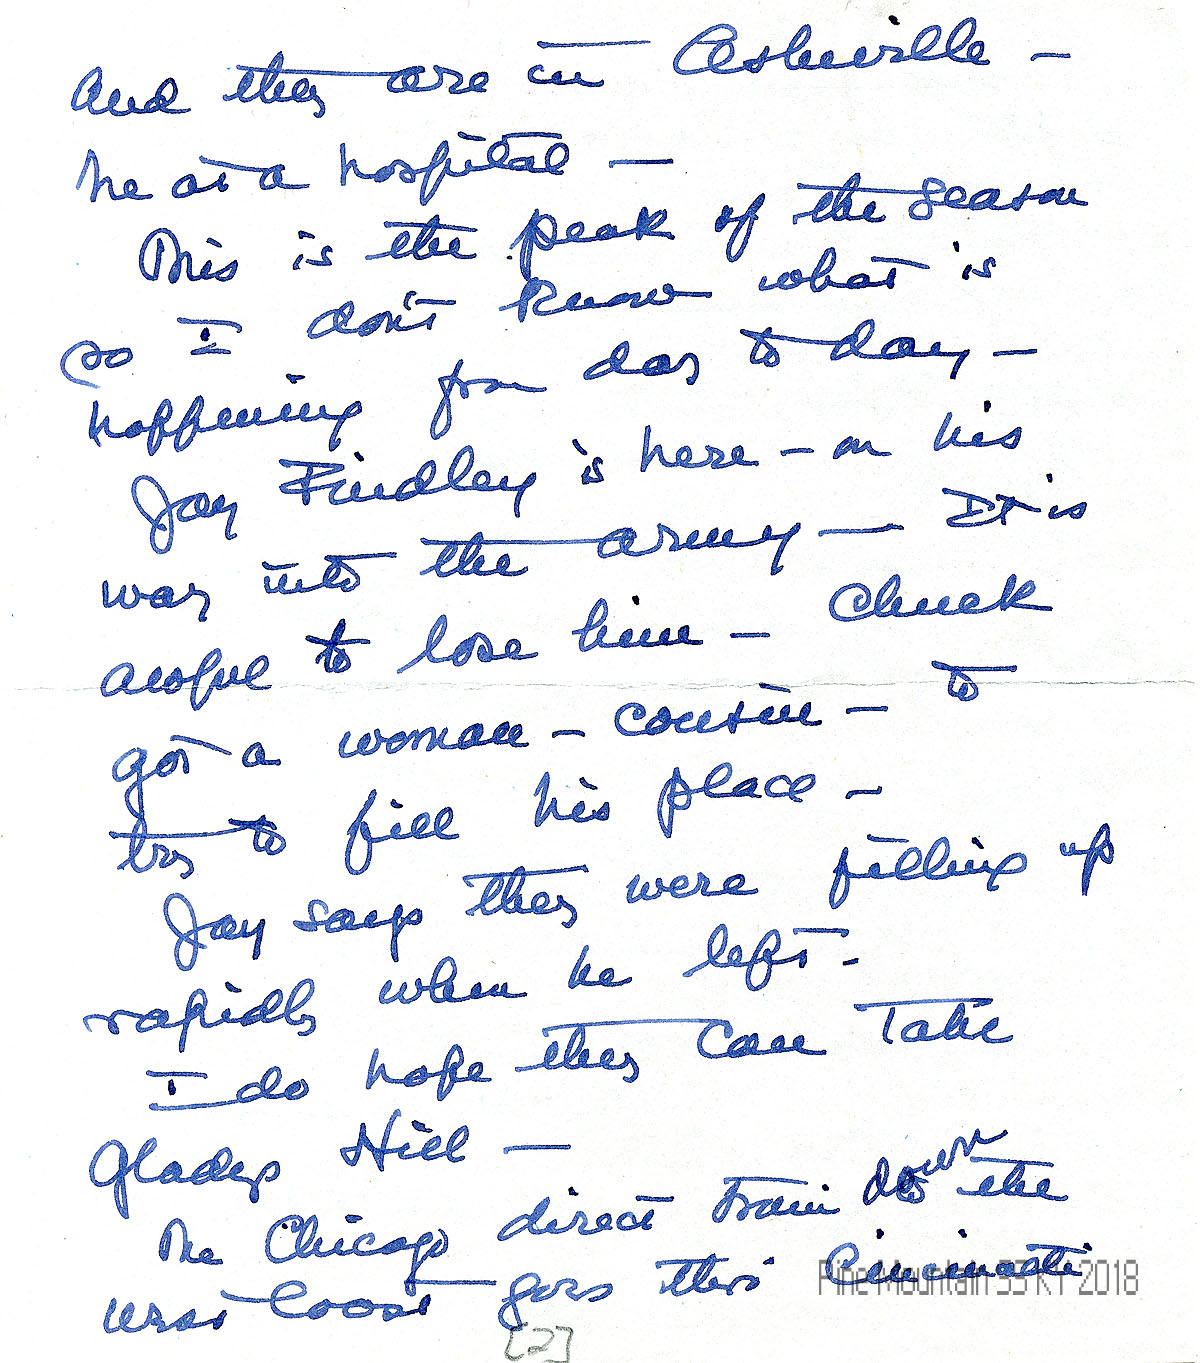 And they are in Asheville —
he at a hospital —
This is the peak of the season
so I don't know what is
happening from day to day —
Jay Findley is here — on his
way into the army — It is
awful to lose him — Chuck
got a woman — cousin — to
try to fill his place —
Jay says they were filling up
rapidly when he left.
I do hope they can take
Gladys Hill —
The Chicago direct train down the
west coast goes thro' Cincinnati
[2]
Pine Mountain SS KY 2018